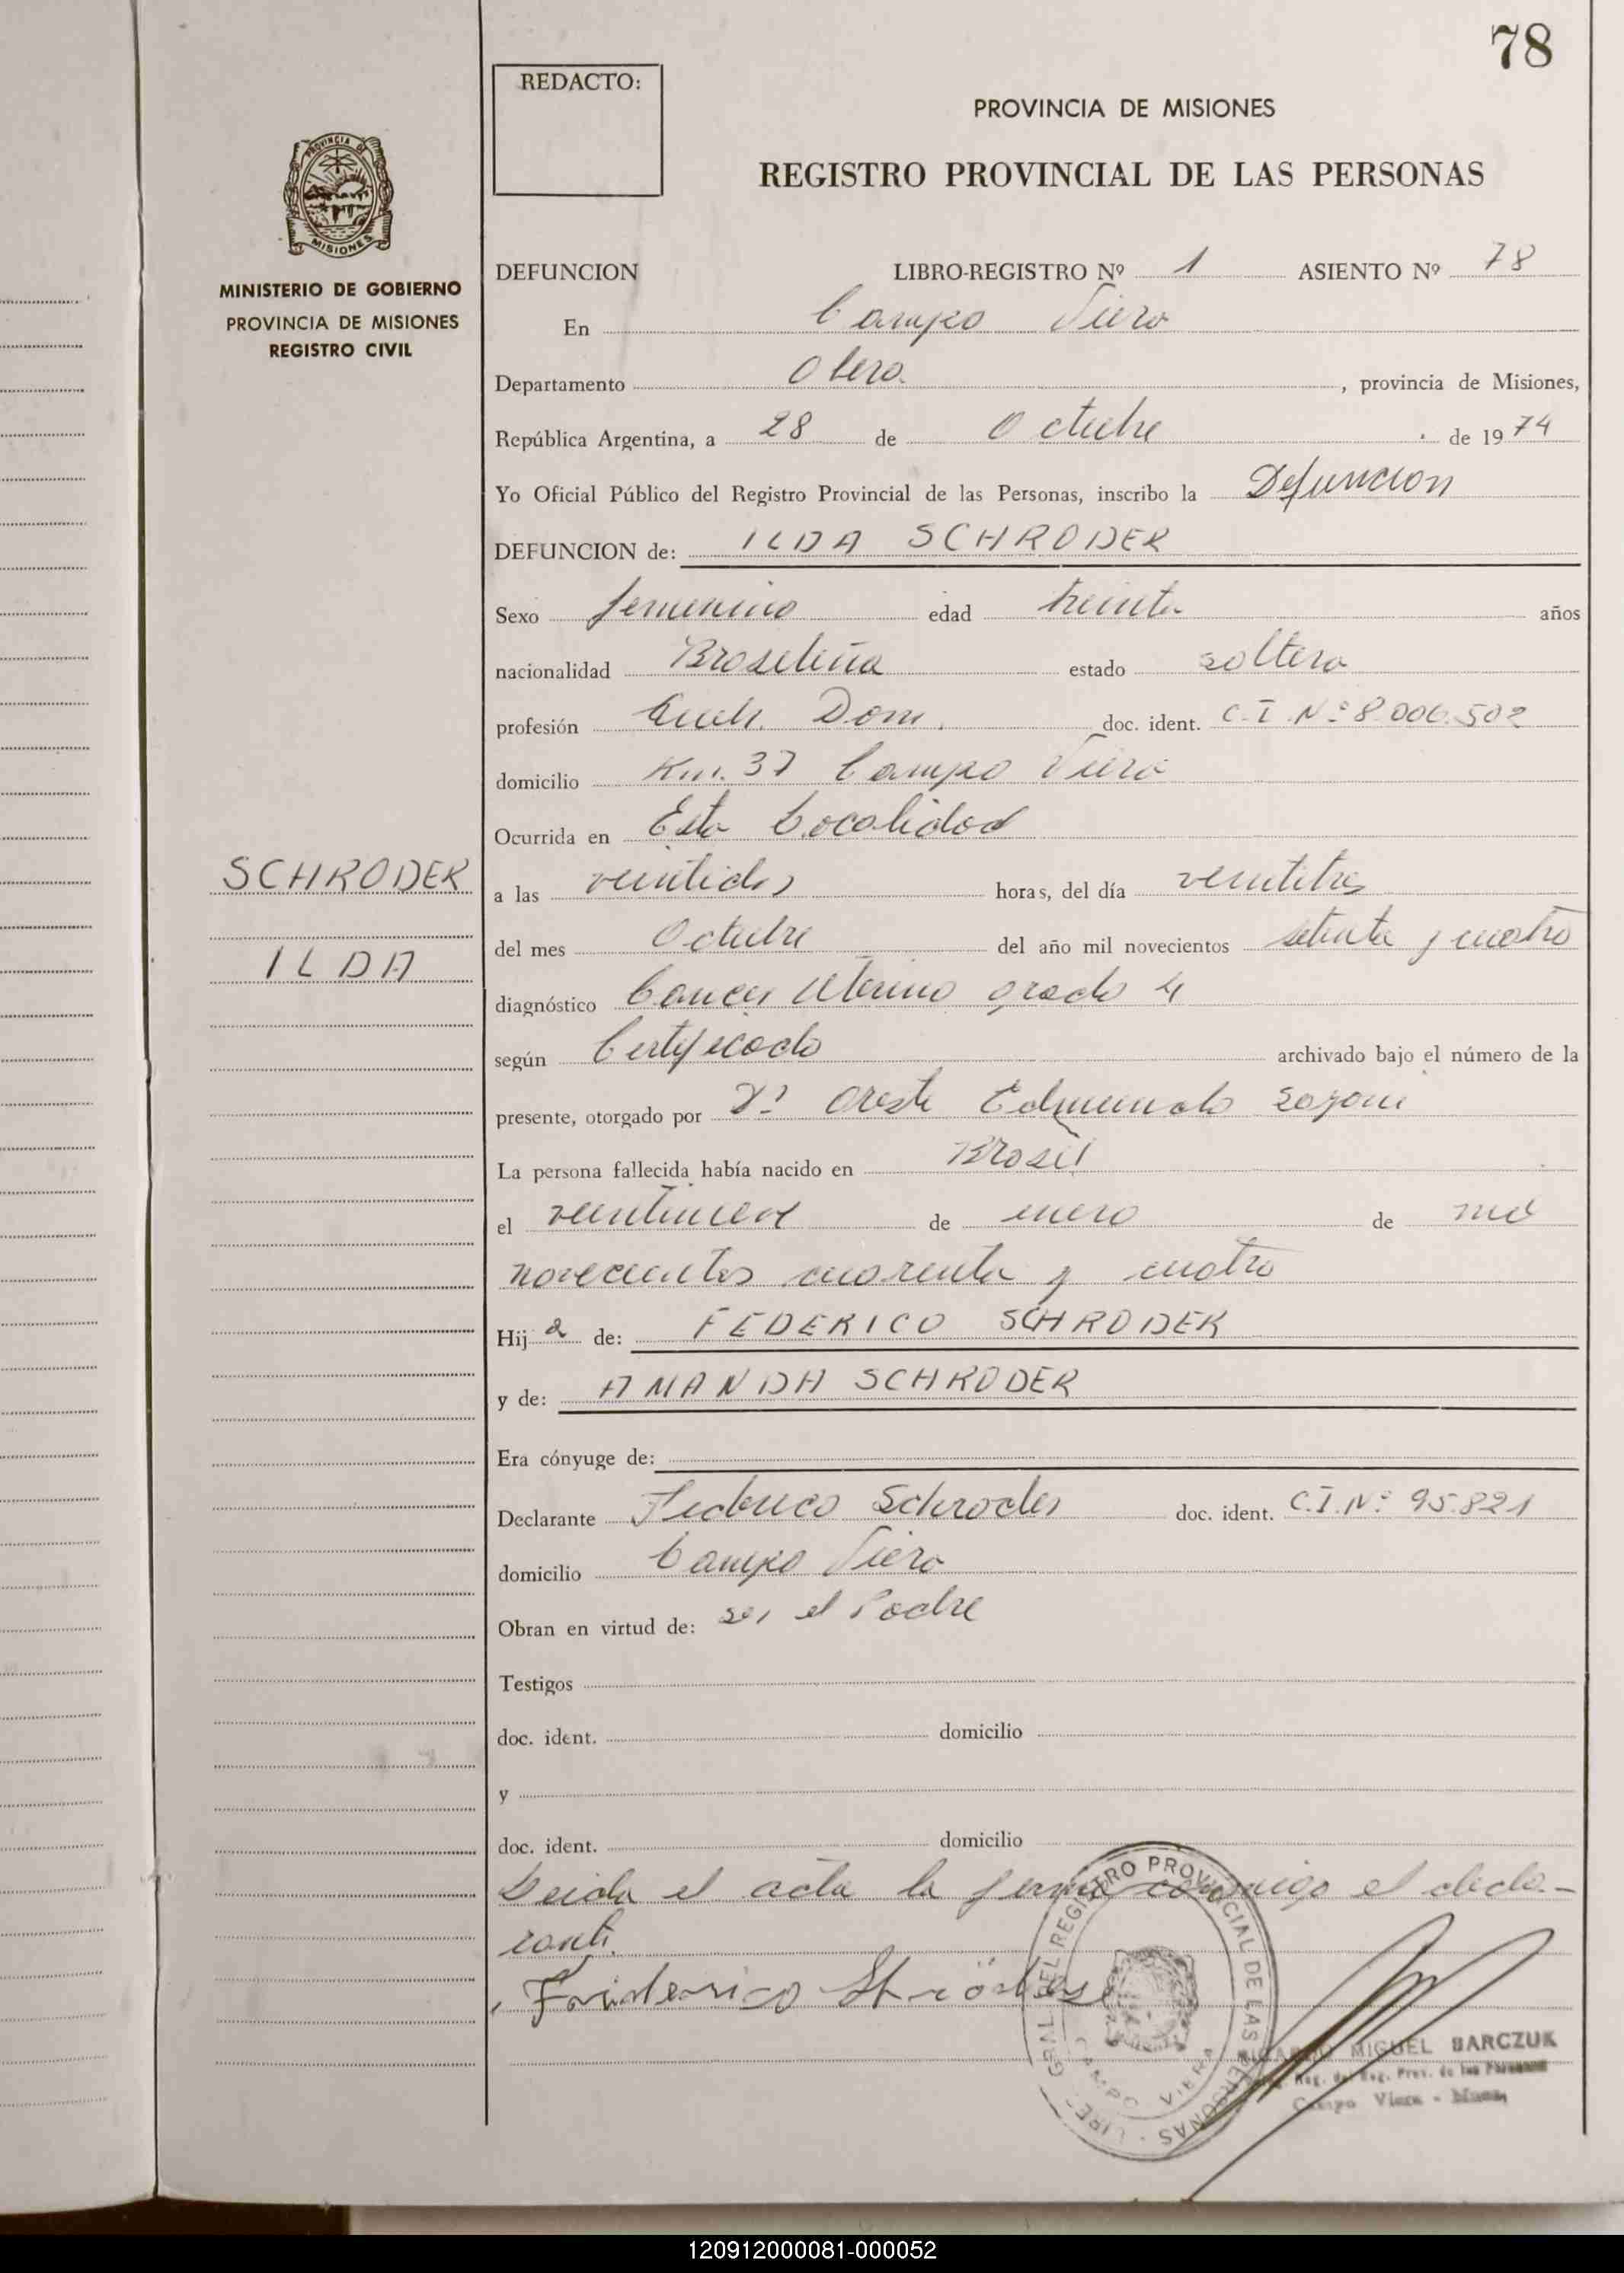 78
REDACTO:
PROVINCIA DE MISIONES
REGISTRO PROVINCIAL DE LAS PERSONAS
PROVINCIA DE
MISIONES
MINISTERIO DE GOBIERNO
PROVINCIA DE MISIONES
REGISTRO CIVIL
SCHRODER
ILDA
DEFUNCION LIBRO-REGISTRO Nº 1 ASIENTO Nº 78
En Campo Viera
Departamento Obera. , provincia de Misiones,
República Argentina, a 28 de Octubre de 1974
Yo Oficial Público del Registro Provincial de las Personas, inscribo la Defuncion
DEFUNCION de: ILDA SCHRODER
Sexo femenino edad treinta años
nacionalidad Brasileña estado soltera
profesión Dom. doc. ident. C.I. Nº 8.006.502
domicilio Km. 37 Campo Viera
Ocurrida en Esta Localidad
a las veintidos horas, del día veintitres
del mes Octubre del año mil novecientos setenta y cuatro
diagnóstico Cancer Uterino grado 4
según Certificado archivado bajo el número de la
presente, otorgado por Dr Oreste Edmundo
La persona fallecida había nacido en Brasil
el veintinueve de enero de mil
novecientos cuarenta y cuatro
Hija de: FEDERICO SCHRODER
y de: AMANDA SCHRODER
Era cónyuge de:
Declarante Federico Schroder doc. ident. C.I. Nº 95.821
domicilio Campo Viera
Obran en virtud de: ser el Padre
Testigos
doc. ident. domicilio
y
doc. ident. domicilio
Leida el acta la firma conmigo el decla-
rante.
DEL REGISTRO PROVINCIAL DE LAS PERSONAS
MIGUEL BARCZUK
Campo Viera
120912000081-000052